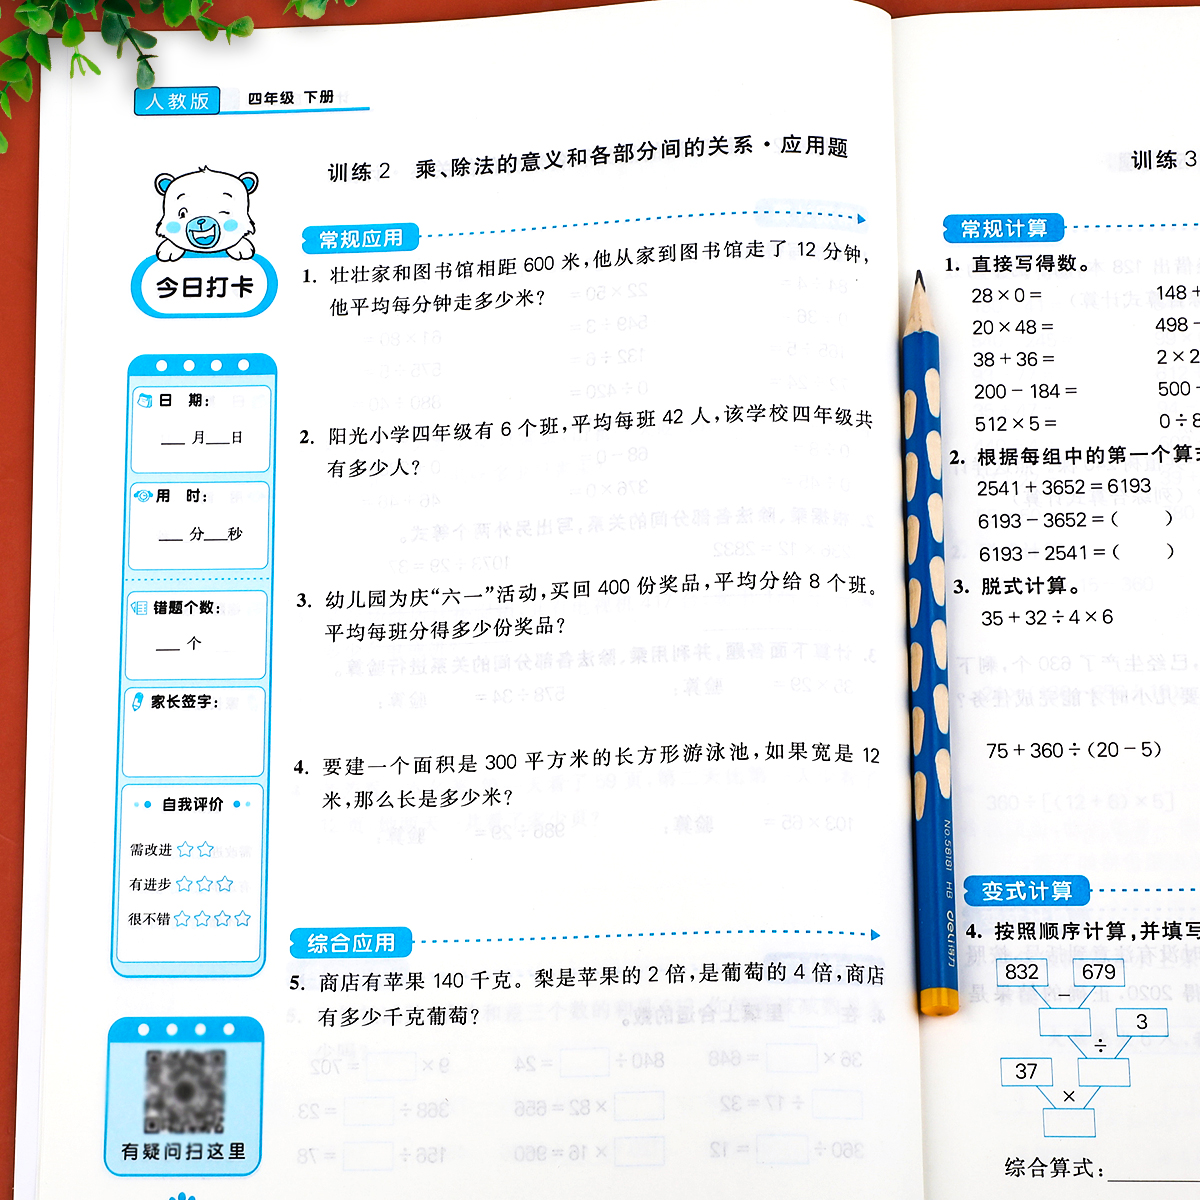 人教版 四年级 下册
训练2 乘、除法的意义和各部分间的关系·应用题
今日打卡
日 期：
___ 月___日
用 时：
___ 分___秒
错题个数：
___ 个
家长签字：
自我评价
需改进☆☆
有进步☆☆☆
很不错☆☆☆☆
有疑问扫这里
常规应用
1. 壮壮家和图书馆相距 600 米，他从家到图书馆走了 12 分钟，
他平均每分钟走多少米？
2. 阳光小学四年级有 6 个班，平均每班 42 人，该学校四年级共
有多少人？
3. 幼儿园为庆“六一”活动，买回 400 份奖品，平均分给 8 个班。
平均每班分得多少份奖品？
4. 要建一个面积是 300 平方米的长方形游泳池，如果宽是 12
米，那么长是多少米？
综合应用
5. 商店有苹果 140 千克。梨是苹果的 2 倍，是葡萄的 4 倍，商店
有多少千克葡萄？
训练3
常规计算
1. 直接写得数。
28×0＝ 148＋
20×48＝ 498－
38＋36＝ 2×2
200－184＝ 500－
512×5＝ 0÷8
2. 根据每组中的第一个算式
2541＋3652＝6193
6193－3652＝（ ）
6193－2541＝（ ）
3. 脱式计算。
35＋32÷4×6
75＋360÷（20－5）
变式计算
4. 按照顺序计算，并填写
832 679
－
3
÷
37
×
综合算式：
No.58181 HB deli得力